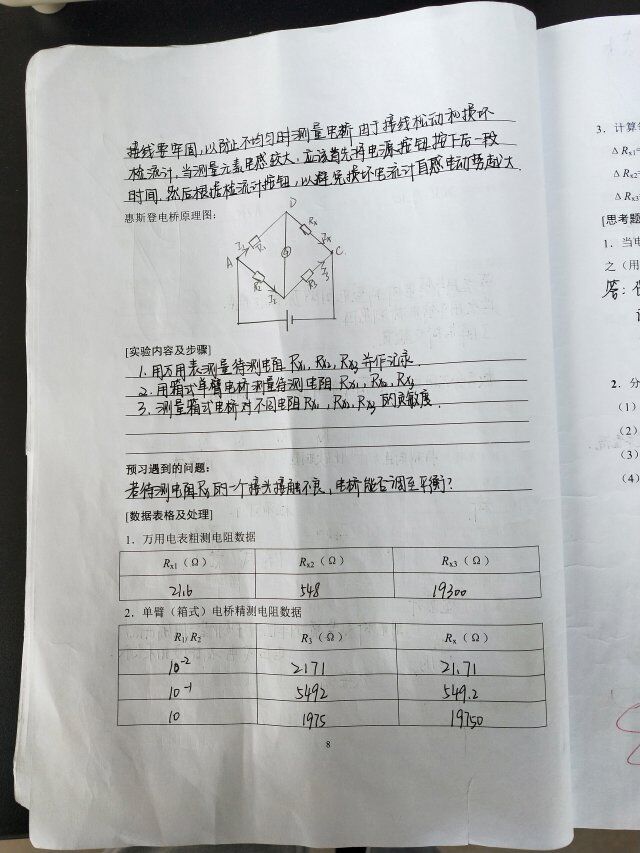 接线要牢固,以防止不均匀时测量电桥由于接线松动和损坏
检流计,当测量元素电感较大,应该首先将电源按钮按下后一段
时间,然后根据检流计按钮,以避免损坏电流计自感电动势越大.
惠斯登电桥原理图:
D
I₁ R₁ Rx Ix
A G C
R₂ I₂ R₃ I₃
[实验内容及步骤]
1. 用万用表测量待测电阻 Rx1, Rx2, Rx3 并作记录.
2. 用箱式单臂电桥测量待测电阻 Rx1, Rx2, Rx3
3. 测量箱式电桥对不同电阻 Rx1, Rx2, Rx3 的灵敏度.
预习遇到的问题:
若待测电阻Rx的一个接头接触不良,电桥能否调至平衡?
[数据表格及处理]
1. 万用电表粗测电阻数据
Rx1(Ω) Rx2(Ω) Rx3(Ω)
21.6 548 19300
2. 单臂(箱式)电桥精测电阻数据
R1/R2 R3(Ω) Rx(Ω)
10⁻² 2171 21.71
10⁻¹ 5492 549.2
10 1975 19750
8
3. 计算
ΔRx1=
ΔRx2=
ΔRx3
[思考题
1. 当电
之(用
答:
2. 分
(1)
(2)
(3)
(4)